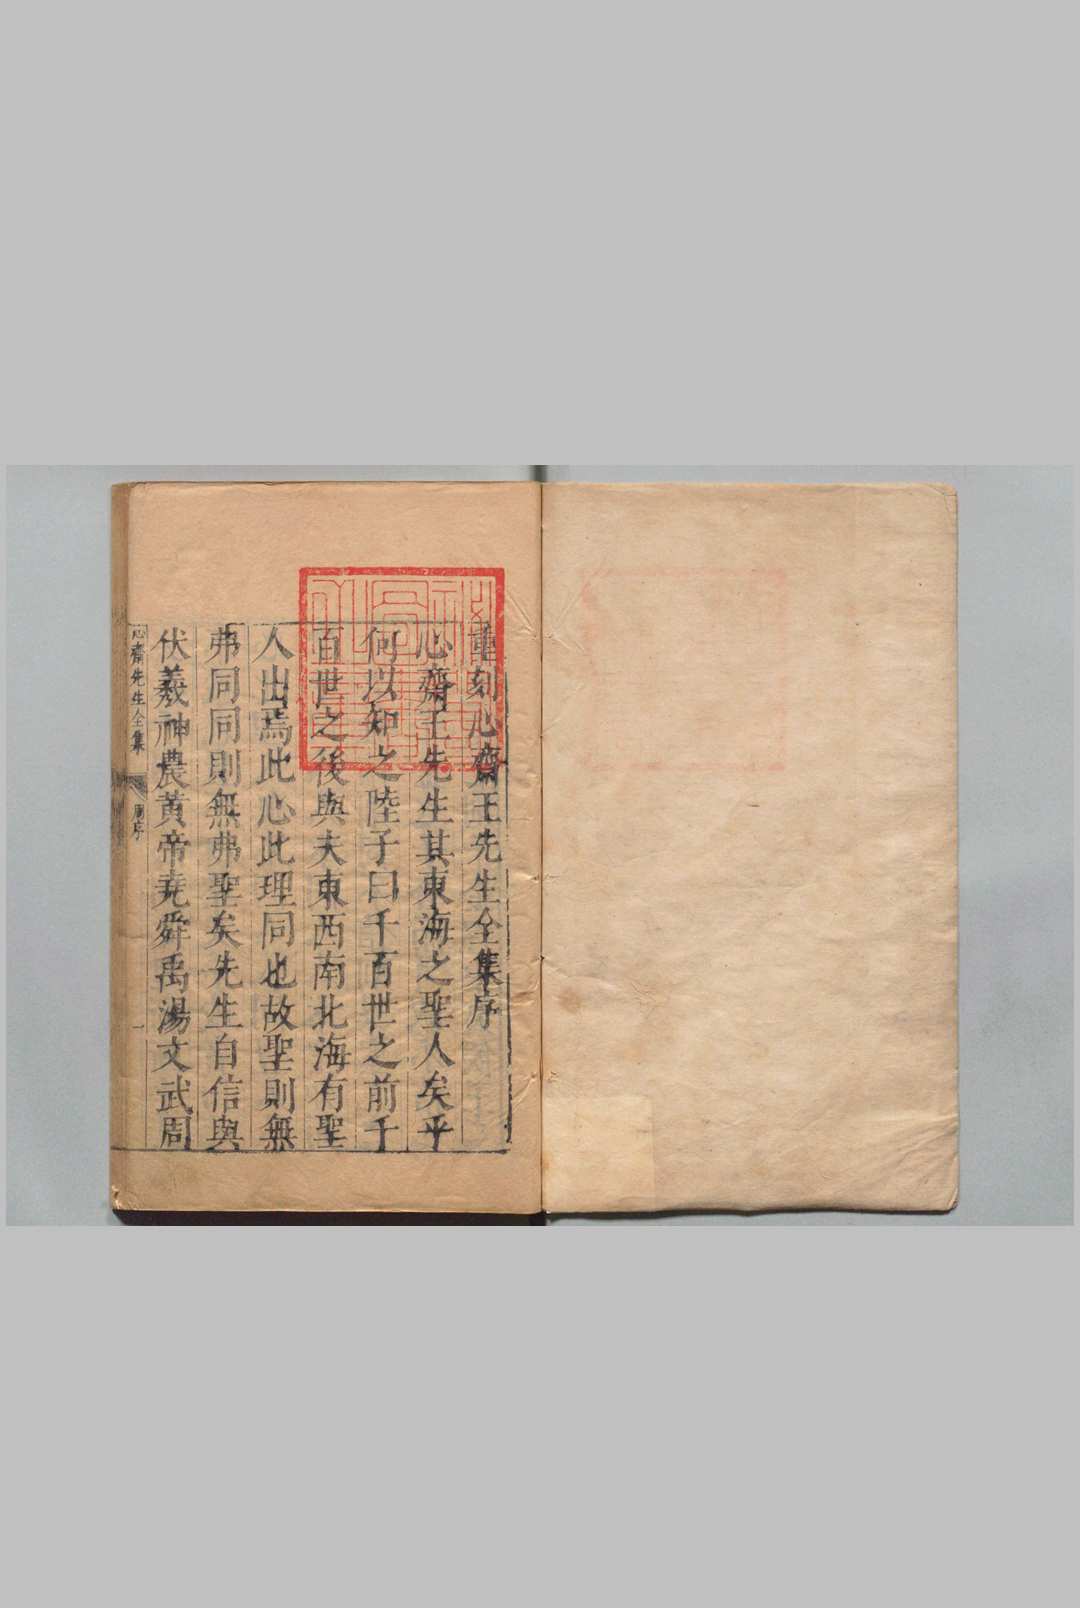 重刻心齋王先生全集序
心齋王先生其東海之聖人矣乎
何以知之陸子曰千百世之前千
百世之後與夫東西南北海有聖
人出焉此心此理同也故聖則無
弗同同則無弗聖矣先生自信與
伏羲神農黃帝堯舜禹湯文武周
心齋先生全集
周序
一